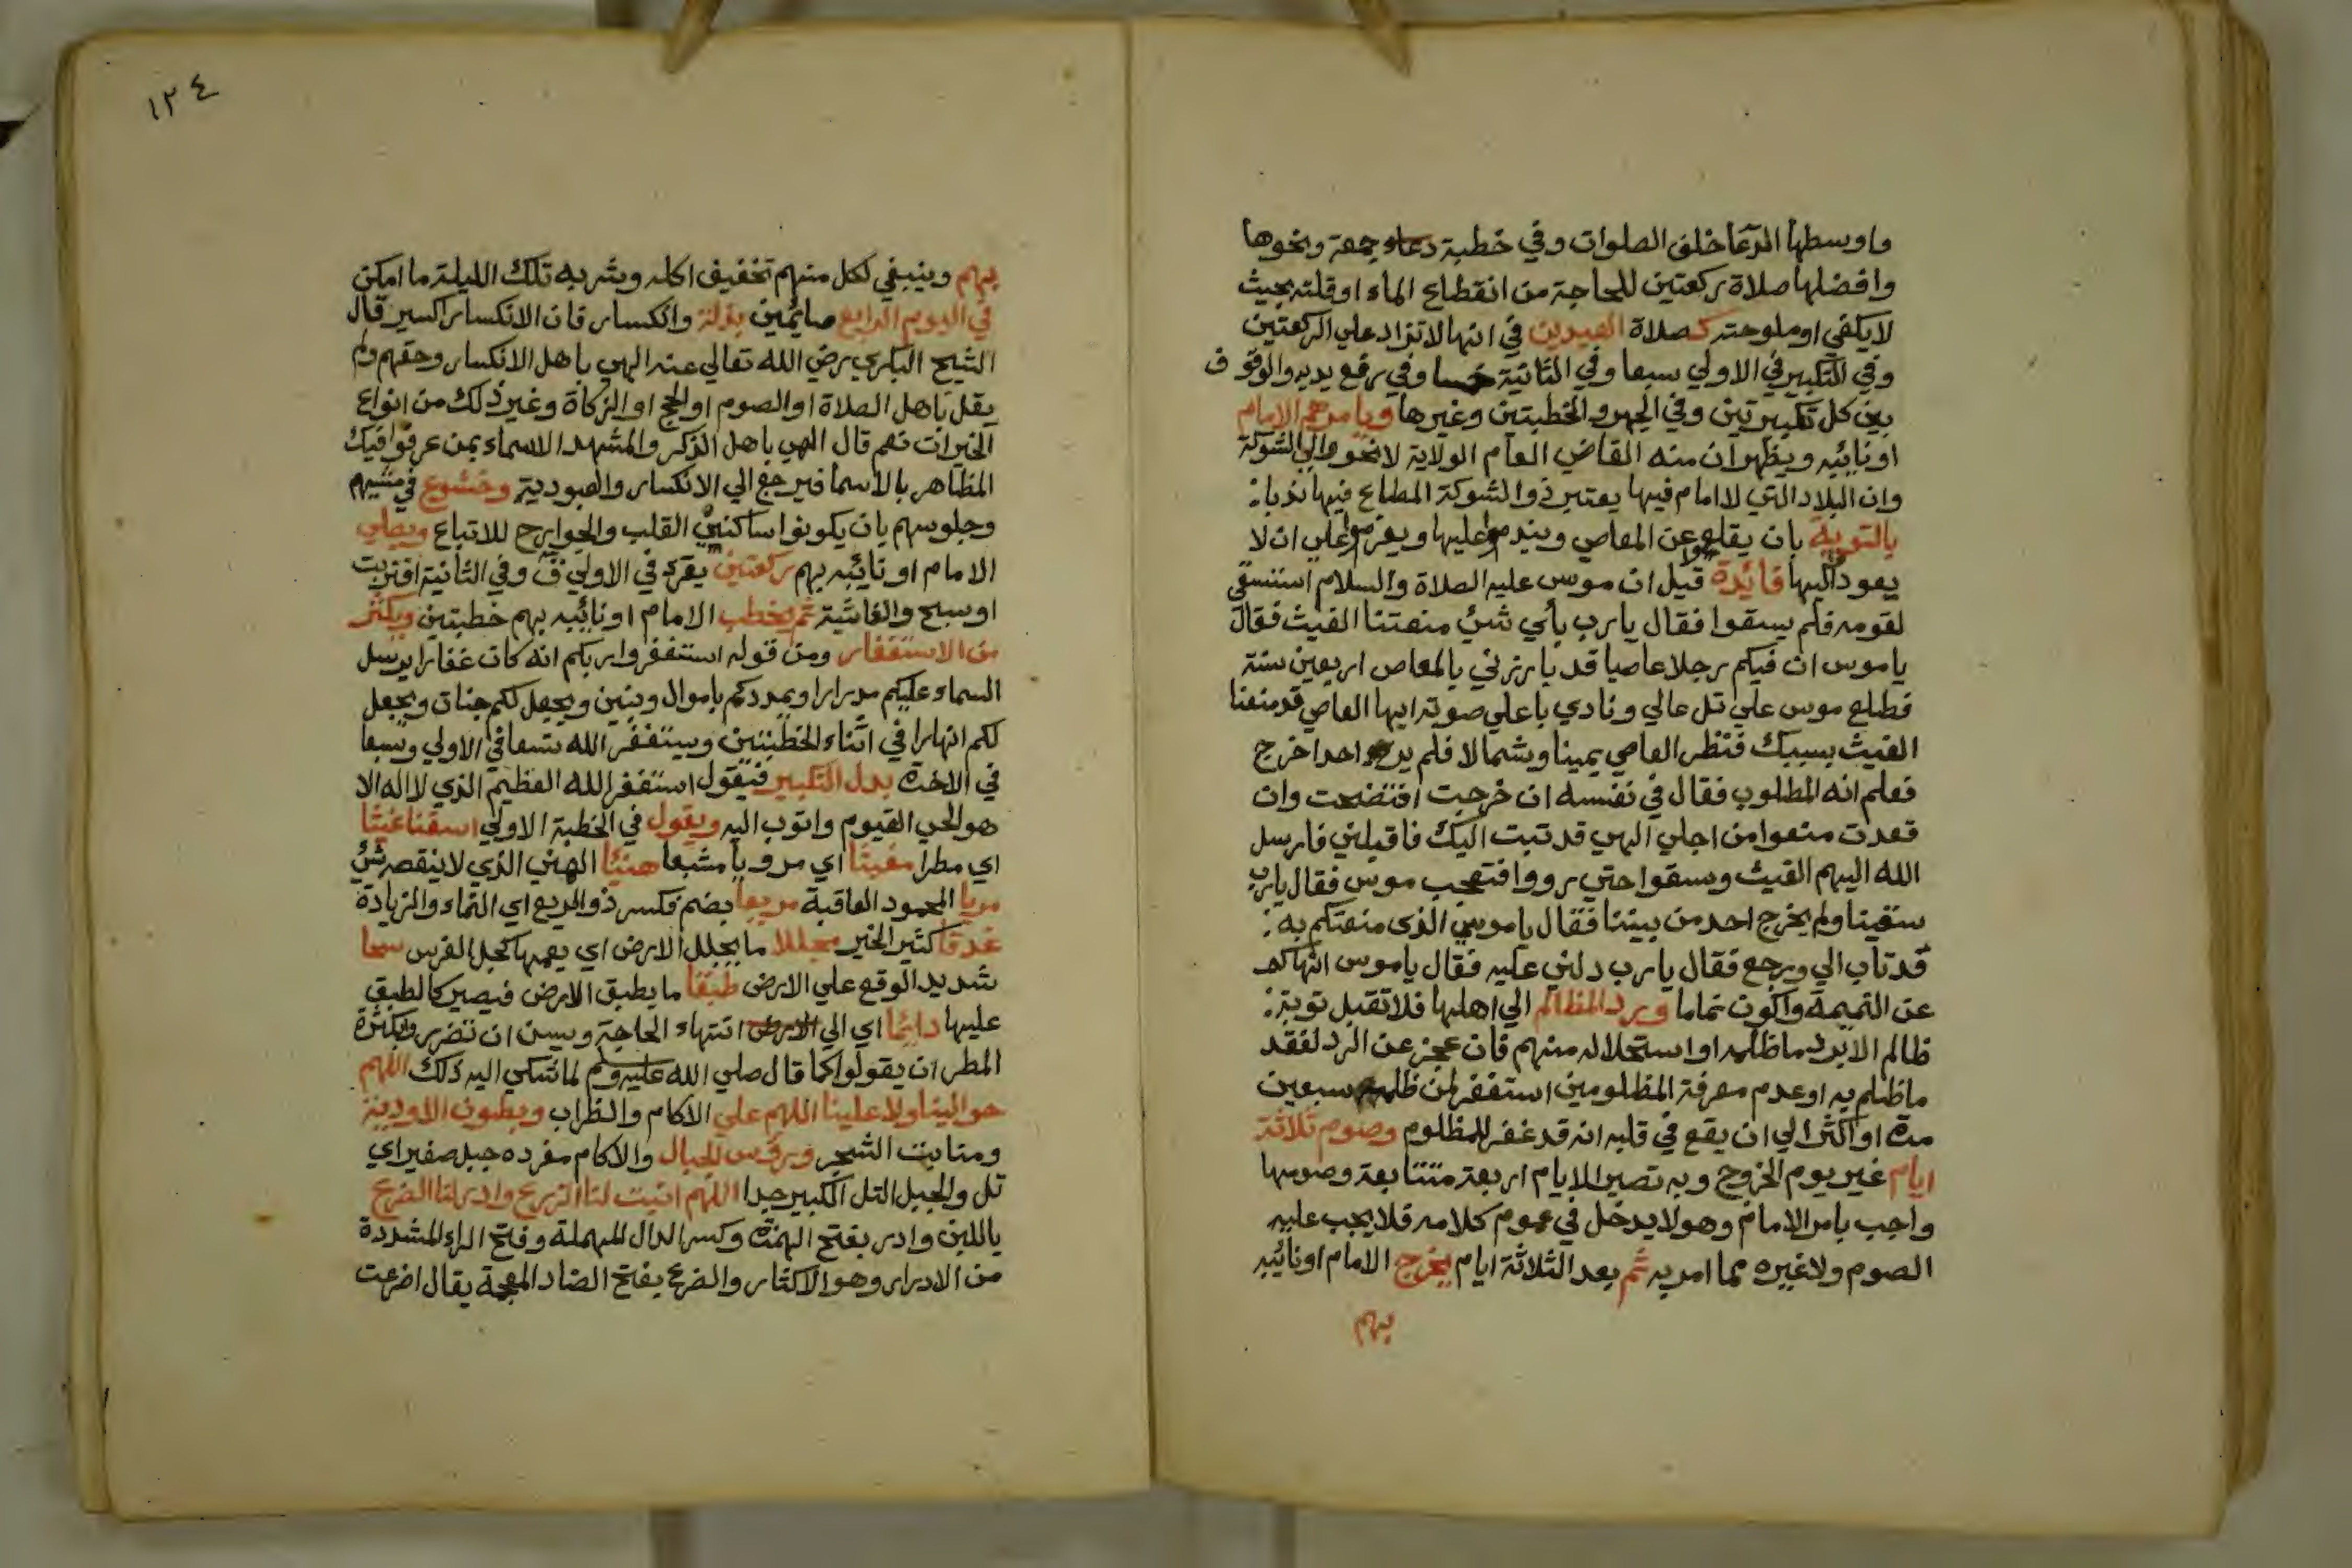 واوسطها الدعا خلف الصلوات وفي خطبة جمعة ونحوها
وافضلها صلاة ركعتين للحاجة من انقطاع الماء اوقلته بحيث
لا يكفي او ملوحته كصلاة العيدين في انها لا تزاد علي الركعتين
وفي التكبير في الاولي سبعا وفي الثانية خمسا وفي رفع يديه والوقوف
بين كل تكبيرتين وفي الجهر والخطبتين وغيرها ويامرهم الامام
او نائبه ويظهر ان منه القاضي العام الولاية لا نحو والي الشوكة
وان البلاد التي لا امام فيها يعتبر ذو الشوكة المطاع فيها ندبا
بالتوبة بان يقلعوا عن المعاصي ويندموا عليها ويعزموا علي ان لا
يعودوا اليها فائدة قيل ان موسي عليه الصلاة والسلام استسقي
لقومه فلم يسقوا فقال يا رب بأي شئ منعتنا الغيث فقال
يا موسي ان فيكم رجلا عاصيا قد بارزني بالمعاصي اربعين سنة
فطلع موسي علي تل عالي ونادي باعلي صوته ايها العاصي قد منعنا
الغيث بسببك فنظر العاصي يمينا وشمالا فلم ير احدا خرج
فعلم انه المطلوب فقال في نفسه ان خرجت افتضحت وان
قعدت منعوا من اجلي الهي قد تبت اليك فاقبلني فارسل
الله اليهم الغيث وسقوا حتي رووا فتعجب موسي فقال يا رب
سقينا ولم يخرج احد من بيننا فقال يا موسي الذي منعتكم به
قد تاب الي ورجع فقال يا رب دلني عليه فقال يا موسي انهاكم
عن النميمة واكون نماما وبرد المظالم الي اهلها فلا تقبل توبة
ظالم الا برد ما ظلمه او استحلاله منهم فان عجز عن الرد لفقد
ما ظلم به او عدم معرفة المظلومين استغفر لمن ظلمه سبعين
مرة او اكثر الي ان يقع في قلبه انه قد غفر للمظلوم وصوم ثلاثة
ايام غير يوم الخروج وبه تصير الايام اربعة متتابعة وصومها
واجب بامر الامام وهو لا يدخل في عموم كلامه فلا يجب عليه
الصوم ولا غيره مما امر به ثم بعد الثلاثة ايام يخرج الامام او نائبه
بهم
١٣٤
بهم وينبغي لكل منهم تخفيف اكله وشربه تلك الليلة ما امكن
في اليوم الرابع صائمين بذلة وانكسار فان الانكسار اكسير قال
الشيخ البكري رضي الله تعالي عنه الهي باهل الانكسار وحقهم ولم
يقل باهل الصلاة او الصوم او الحج او الزكاة وغير ذلك من انواع
الخيرات نعم قال الهي باهل الذكر والمشهد الاسماء بمن عرفوا فيك
المظاهر بالاسما فيرجع الي الانكسار والعبودية وخشوع في مشيهم
وجلوسهم بان يكونوا ساكنين القلب والجوارح للاتباع ويصلي
الامام او نائبه بهم ركعتين يقرء في الاولي ق وفي الثانية اقتربت
او سبح والغاشية ثم يخطب الامام او نائبه بهم خطبتين ويكثر
من الاستغفار ومن قوله استغفروا ربكم انه كان غفارا يرسل
السماء عليكم مدرارا ويمددكم باموال وبنين ويجعل لكم جنات ويجعل
لكم انهارا في اثناء الخطبتين ويستغفر الله تسعا في الاولي وسبعا
في الاخرة بدل التكبير فيقول استغفر الله العظيم الذي لا اله الا
هو الحي القيوم واتوب اليه ويقول في الخطبة الاولي اسقنا غيثا
اي مطرا مغيثا اي مرويا مشبعا هنيئا الهني الذي لا ينقصه شئ
مريا المحمود العاقبة مريعا بضم فكسر ذو الريع اي النماء والزيادة
غدقا كثير الخير مجللا ما يجلل الارض اي يعمها كجل الفرس سحا
شديد الوقع علي الارض طبقا ما يطبق الارض فيصير كالطبق
عليها دائما اي الي انتهاء الحاجة ويسن ان تضرروا بكثرة
المطر ان يقولوا كما قال صلي الله عليه وسلم لما شكي اليه ذلك اللهم
حوالينا ولا علينا اللهم علي الاكام والظراب وبطون الاودية
ومنابت الشجر ورؤس الجبال والاكام مفرده جبل صغير اي
تل والجبل التل الكبير جدا اللهم انبت لنا الزرع وادر لنا الضرع
باللبن وادر بفتح الهمزة وكسر الدال المهملة وفتح الراء المشددة
من الادرار وهو الاكثار والضرع بفتح الضاد المعجمة يقال اضرعت